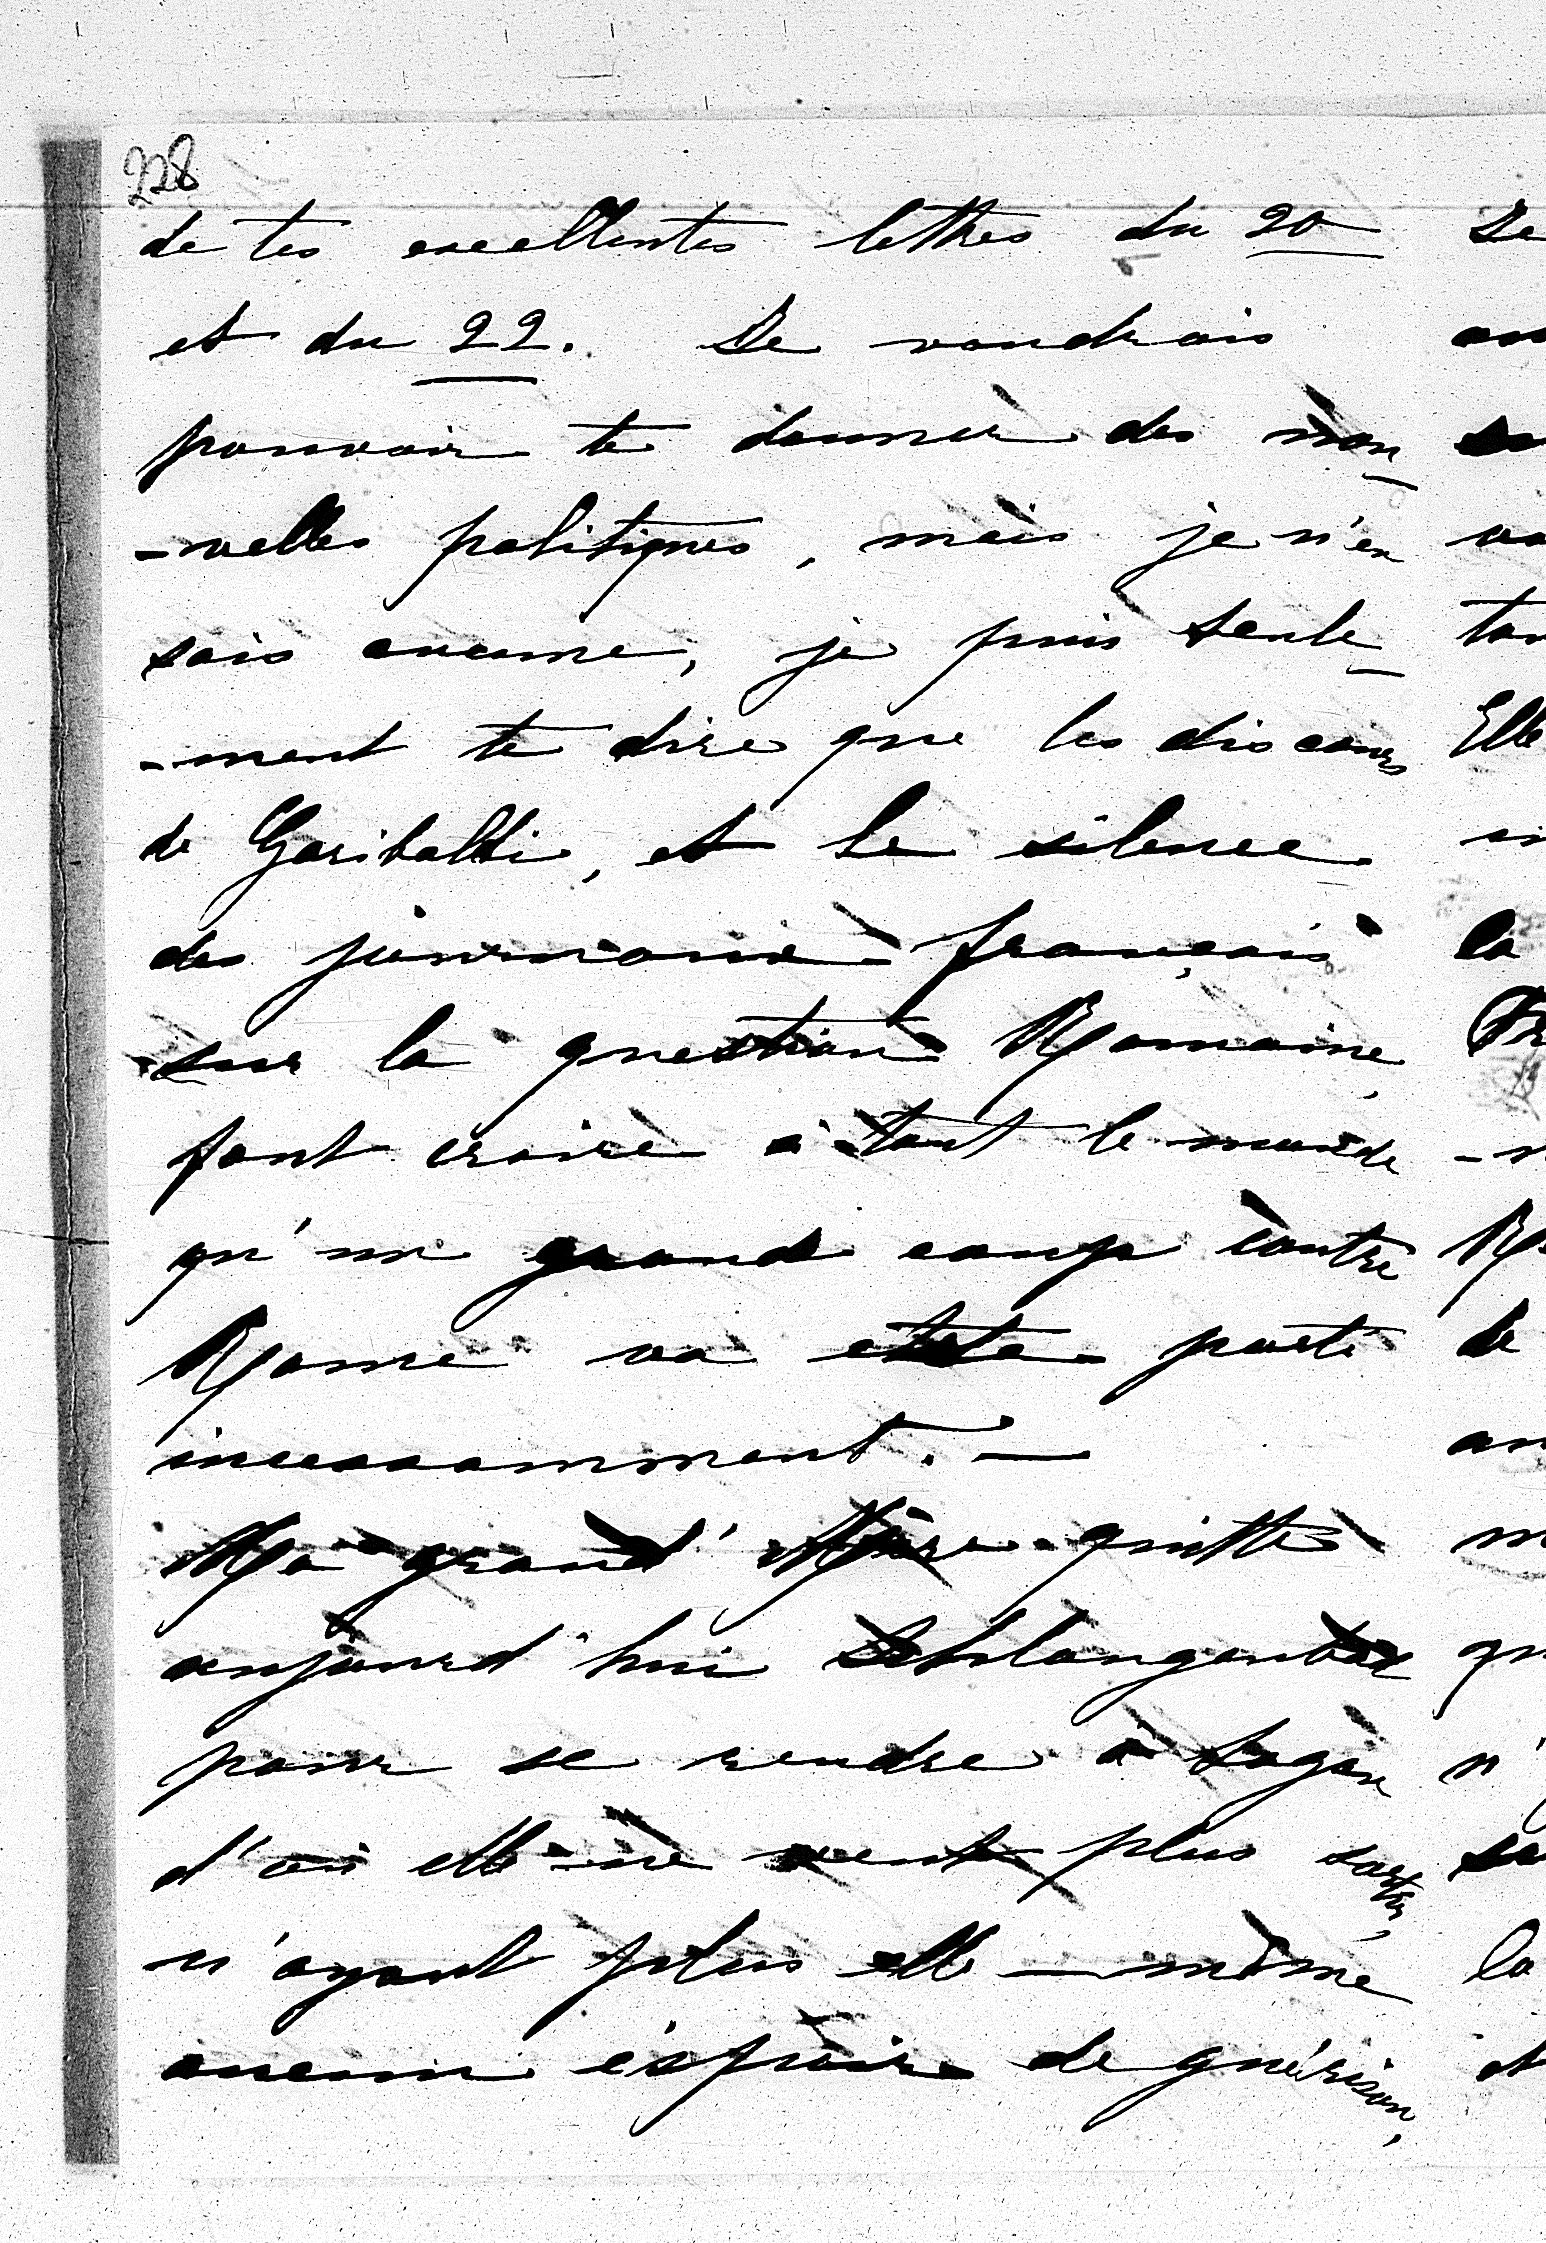 228
de tes excellentes lettres du 20
et du 22. Je voudrais
pouvoir te donner des nou-
-velles politiques, mais je n'en
sais aucune, je puis seule-
-ment te dire que les discours
de Garibaldi, et le silence
des journaux français
sur la question Romaine,
font croire à tout le monde
qu'un grand coup contre
Rome va être porté
incessamment. —
Ma grand' Mère quitte
aujourd'hui Schlangenbad
pour se rendre à Sagan
d'où elle ne veut plus sortir,
n'ayant plus elle-même
aucun éspoir de guérison,